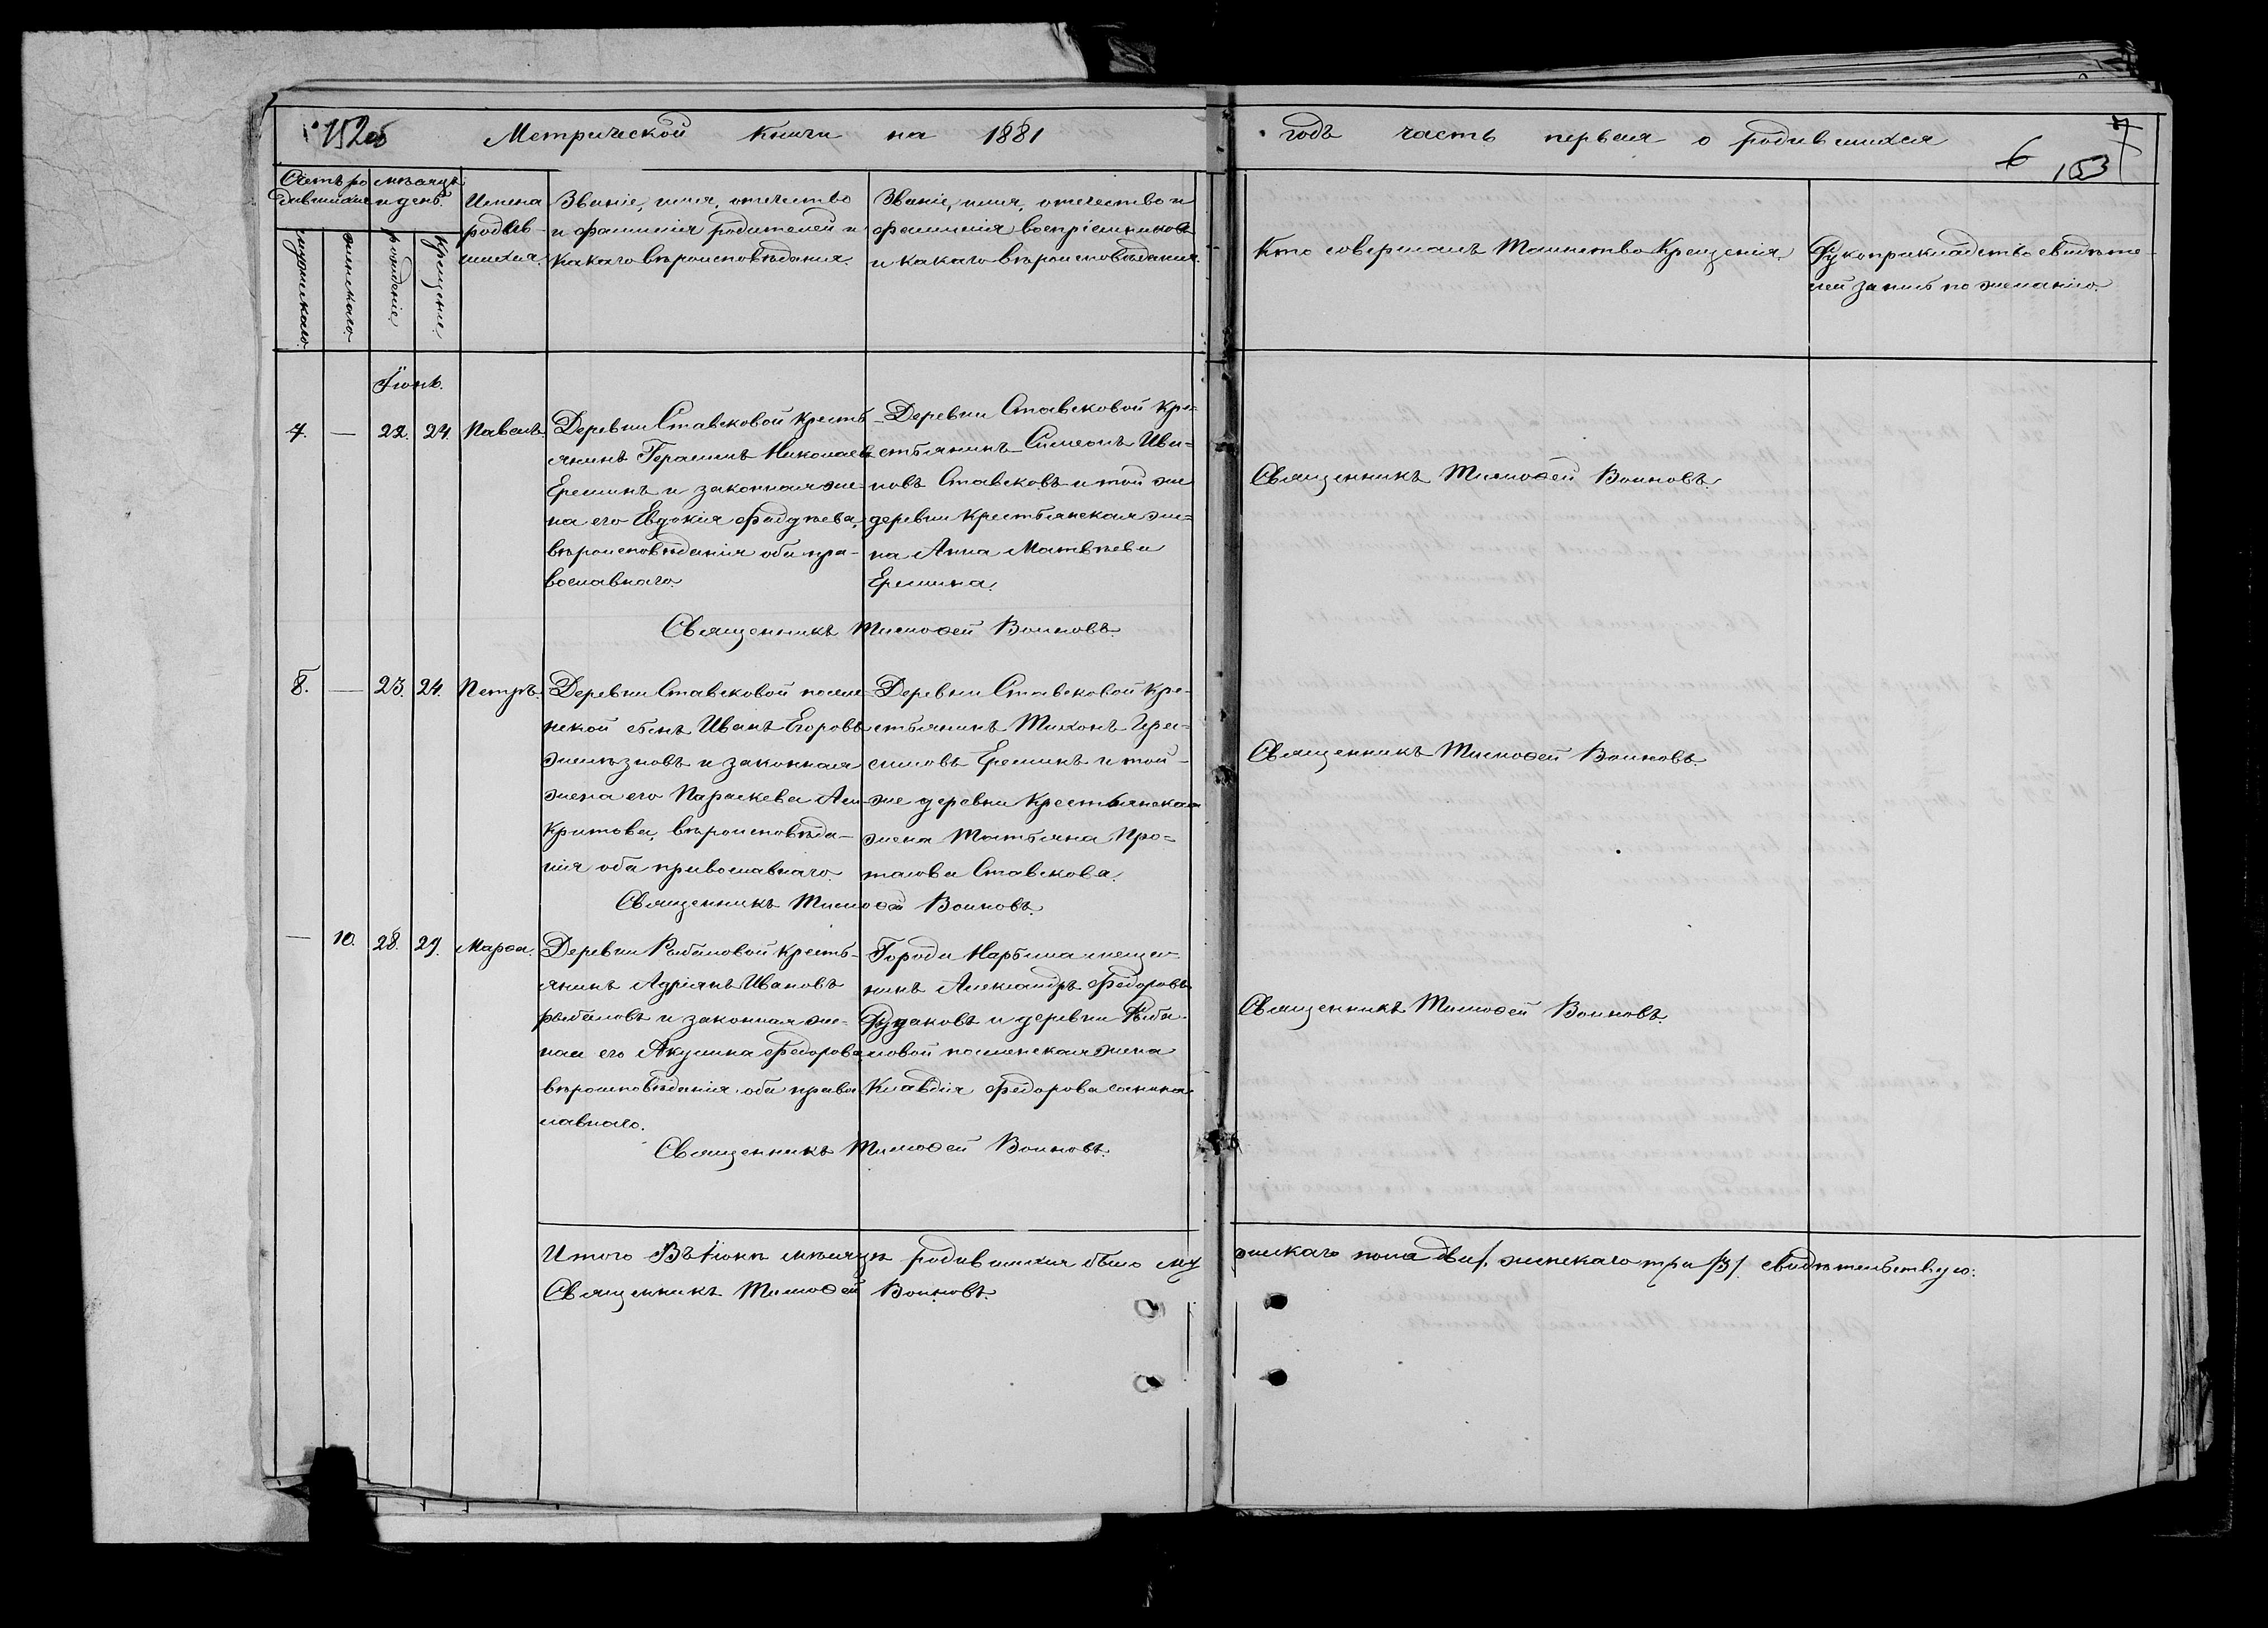 152об
Метрической книги на 1881
годъ часть первая о родившихся
6
153
Счетъ ро
дившихся
мѣсяцъ
и день.
мужскаго.
женскаго.
рожденіе.
крещеніе.
Имена
родив-
шихся.
Званіе, имя, отчество
и фамилія родителей и
какаго вѣроисповѣданія.
Званіе, имя, отчество и
фамилія воспріемниковъ
и какаго вѣроисповѣданія.
Кто совершалъ Таинство Крещенія.
Рукоприкладство свидѣте-
лей запись по желанію.
Іюнь.
7. — 22. 24. Павелъ.
Деревни Ставсковой кресть-
янинъ Герасимъ Николаевъ
Ереминъ и законная же-
на его Евдокія Фадѣева,
вѣроисповѣданія оба пра-
вославнаго.
Деревни Ставсковой Кре-
стьянинъ Симеонъ Ива-
новъ Ставсковъ и той же
деревни крестьянская же-
на Анна Матвѣева
Еремина.
Священникъ Тимофей Воиновъ.
Священникъ Тимоѳей Воиновъ.
8. — 23. 24. Петръ.
Деревни Ставсковой поселе-
нской сынъ Иванъ Егоровъ
Желѣзновъ и законная
жена его Параскева Аси-
критова, вѣроисповѣда-
нія оба православнаго.
Деревни Ставсковой Кре-
стьянинъ Тихонъ Гера-
симовъ Ереминъ и той-
же деревни Крестьянская
жена Татьяна Про-
тасова Ставскова.
Священникъ Тимоѳей Воиновъ.
Священникъ Тимоѳей Воиновъ.
— 10. 28. 29. Марѳа.
Деревни Рыбаловой кресть-
янинъ Адріянъ Ивановъ
Рыбаловъ и законная же-
на его Акулина Федорова,
вѣроисповѣданія оба право-
славнаго.
Города Нарыма мещан-
нинъ Александръ Федоровъ
Рудаковъ и деревни Рыба-
ловой поселенская жена
Клавдія Федорова
Священникъ Тимоѳей Воиновъ.
Священникъ Тимоѳей Воиновъ.
Итого Въ Іюнѣ мѣсяцѣ родившихся было му
жскаго пола два/, женскаго три /3/. Свидѣтельствую:
Священникъ Тимоѳей Воиновъ.